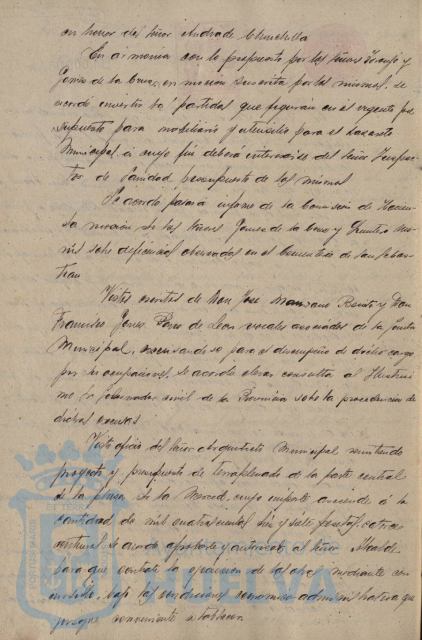 en honor del Señor Andrade Chinchilla
En armonia con lo propuesto por los Señores y
Gomez de la en mocion suscrita por los mismos, se
acordó invertir la partida que figura en el vigente pre
supuesto para mobiliario y utensilio para el Lazareto
Municipal á cuyo fin deberá interesarse del Señor Inspec
tor de Sanidad presupuesto de los mismos
Se acordó pasar á informe de la Comision de Hacien
da mocion de los Señores Gomez de la y Quintero
sobre deficiencias observadas en el Cementerio de San Sebas
tian
Vistos escritos de Don José Manzano y Don
Francisco Perez de Leon vocales asociados de la Junta
Municipal, excusandose para el desempeño de dicho cargo
por sus ocupaciones, se acordó elevar consulta al Ilustrisi
mo Gobernador civil de la Provincia sobre la procedencia de
dichas excusas
Visto oficio del Señor Arquitecto Municipal remitiendo
proyecto y presupuesto de terraplenado de la parte central
de la plaza de la Merced, cuyo importe asciende á la
cantidad de mil cuatrocientas y siete pesetas
centimos se acordó aprobarlo y autorizar al Señor Alcalde
para que contrate la ejecucion de las obras mediante con
bajo las condiciones economico administrativas que
juzgue conveniente establecer
HUELVA